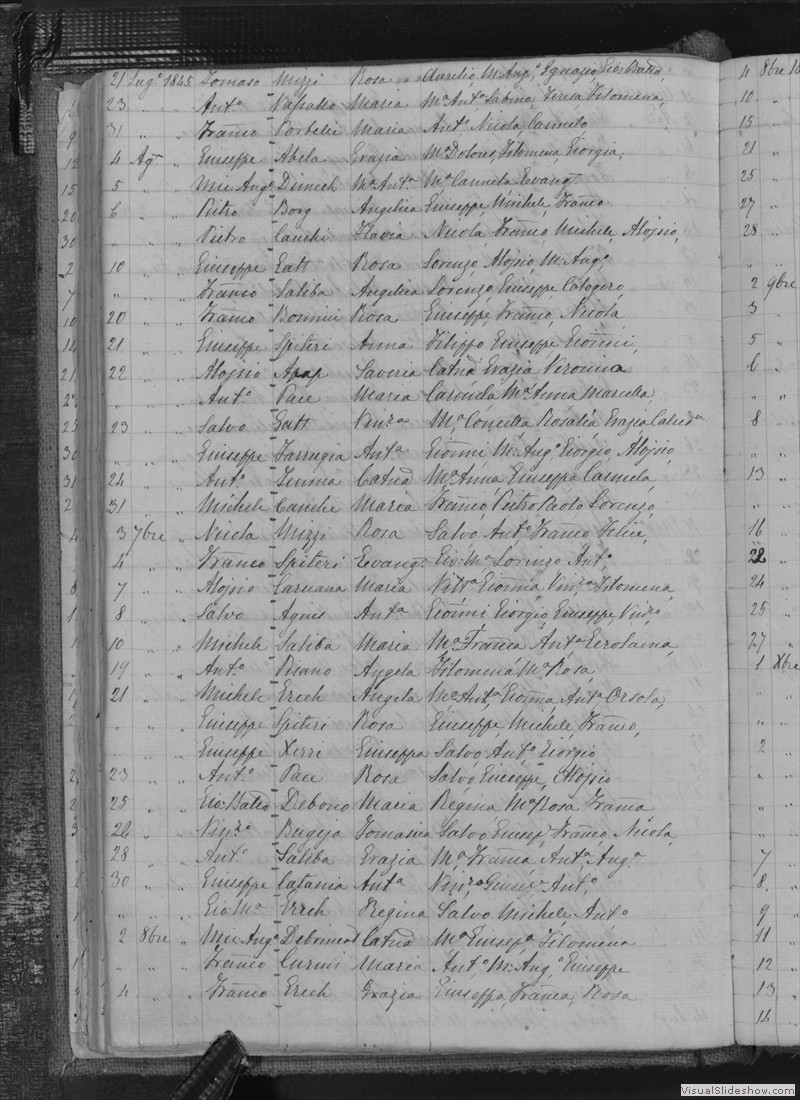 21 Lug.o 1845. Tomaso Mizzi Rosa Aurelio, M. Ang.o, Ignazio, Gio Batta,
23 " " Ant.o Vassallo Maria M.a Ant.a Sabina, Teresa Filomena,
31 " " Franco Portelli Maria Ant.o Nicola Carmelo
4 Ag. " Giuseppe Abela Grazia M.a Dolores, Filomena, Giorgia,
5 " " Mic. Ang.o Dimech M.a Ant.a M.a Carmela Evang.
6 " " Pietro Borg Angelica Giuseppe, Michele, Franco
" " " Pietro Cauchi Flavia Nicola Franco, Michele, Alojsio,
10 " " Giuseppe Gatt Rosa Lorenzo, Alojsio, M. Ang.o,
" " " Franco Saliba Angelica Lorenzo, Giuseppe, Calogero,
20 " " Franco Bonnici Rosa Giuseppe, Franco, Nicola
21 " " Giuseppe Spiteri Anna Filippo Giuseppe Gionni,
22 " " Alojsio Apap Saveria Catnd Grazia Veronica
" " " Ant.o Pace Maria Carmela M.a Anna Marcella,
23 " " Salvo Gatt Vinz.a M.a Concetta Rosalia, Grazia Calcid.a
" " " Giuseppe Farrugia Ant.a Gionni, M. Ang.o Giorgio, Alojsio,
24 " " Ant.o Zerafa Catnd M.a Anna Giuseppa Carmela,
31 " " Michele Cauchi Maria Franco, Pietro Paolo Lorenzo,
3 7bre " Nicola Mizzi Rosa Salvo Ant.o Franco Felice,
4 " " Franco Spiteri Evang. Gio: M.a Lorenzo Ant.o,
7 " " Alojsio Caruana Maria Vitt.a Gionna, Vinz.a Filomena,
8 " " Salvo Agius Ant.a Gionni Giorgio, Giuseppe, Vinz.o,
10 " " Michele Saliba Maria M.a Franca Ant.a Gerolama,
19 " " Ant.o Pisano Angela Filomena M.a Rosa,
21 " " Michele Grech Angela M.a Ant.a Gionna, Ant.a Orsola,
" " " Giuseppe Spiteri Rosa Giuseppe, Michele, Franco,
" " " Giuseppe Xerri Giuseppa Salvo Ant.o Giorgio
23 " " Ant.o Pace Rosa Salvo Giuseppe, Alojsio
25 " " Gio: Batta Debono Maria Regina M.a Rosa, Franca
26 " " Vinz.o Bugeja Tomasica Salvo, Giusep, Franco, Nicola,
28 " " Ant.o Saliba Grazia M.a Franca Ant.a Ang.a
30 " " Giuseppe Catania Ant.a Vinz.o Ant.o,
" " " Gio M.a Grech Regina Salvo Michele Ant.o
2 8bre " Mic. Ang.o Debrincat Catnd M.a Giusep.a Filomena
" " " Franco Curmi Maria Ant.o M. Ang.o Giuseppe
4 " " Franco Grech Grazia Giuseppa, Franca, Rosa
4 8bre 18
10 "
15 "
21 "
25 "
27 "
28 "
" "
2 9bre
3 "
5 "
6 "
" "
8 "
13 "
" "
16 "
22 "
24 "
25 "
27 "
1 Xbre
" "
2 "
" "
" "
7 "
8 "
9 "
11 "
12 "
13 "
14
VisualSlideshow.com